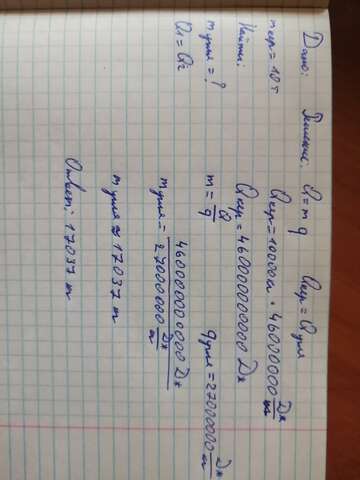 Дано:
mкер = 10 т
Найти:
mугля = ?
Q1 = Q2
Решение: Q = m q   Qкер = Qугля
Qкер = 10000 · 46000000 Дж
Qкер = 460000000000 Дж
m = Q/q   qугля = 27000000 Дж
mугля = 460000000000 Дж / 27000000 Дж
mугля ≈ 17037
Ответ: 17037